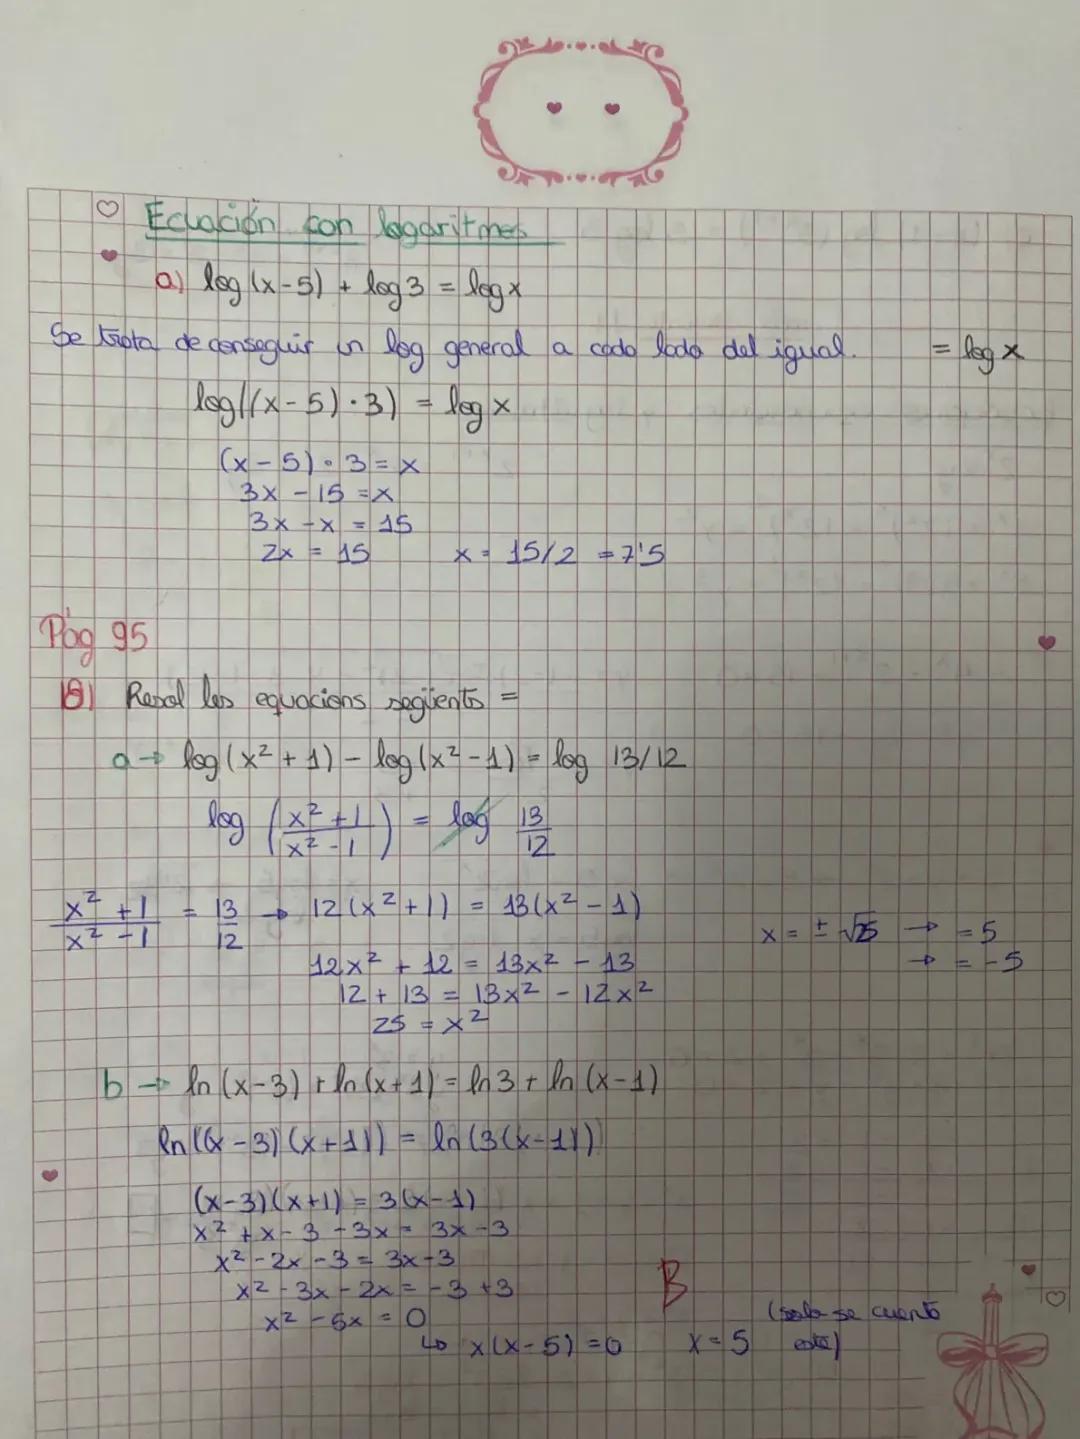 Ecuación con logaritmes
a) log(x-5) + log3 = logx
Se trata de conseguir un log general a cada lado del igual. = log x
log((x-5)·3) = log x
(x-5)·3=x
3x-15=x
3x-x = 15
2x = 15 x = 15/2 = 7'5
Pág 95
Resol les equacions següents =
a → log(x²+1) - log(x²-1) = log 13/12
log (x²+1/x²-1) = log 13/12
x²+1/x²-1 = 13/12 → 12(x²+1) = 13(x²-1)
x = ± √25 → = 5
→ = -5
12x² + 12 = 13x² - 13
12 + 13 = 13x² - 12x²
25 = x²
b → ln(x-3) + ln(x+1) = ln3 + ln(x-1)
ln((x-3)(x+1)) = ln(3(x-1))
(x-3)(x+1) = 3(x-1)
x²+x-3-3x = 3x-3
x²-2x-3 = 3x-3
x²-3x-2x = -3+3
x²-5x = 0
B
↳ x(x-5) = 0 x = 5 (solo se cuenta este)